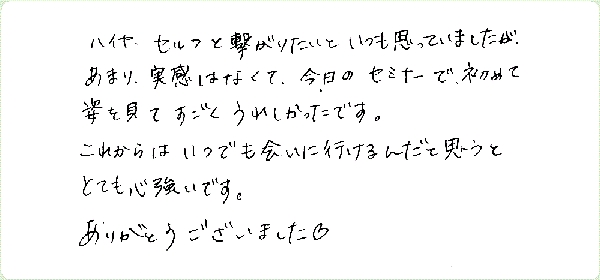 ハイヤーセルフと繋がりたいといつも思っていましたが、
あまり、実感はなくて、今日のセミナーで、初めて
姿を見てすごくうれしかったです。
これからはいつでも会いに行けるんだと思うと
とても心強いです。
ありがとうございました♡